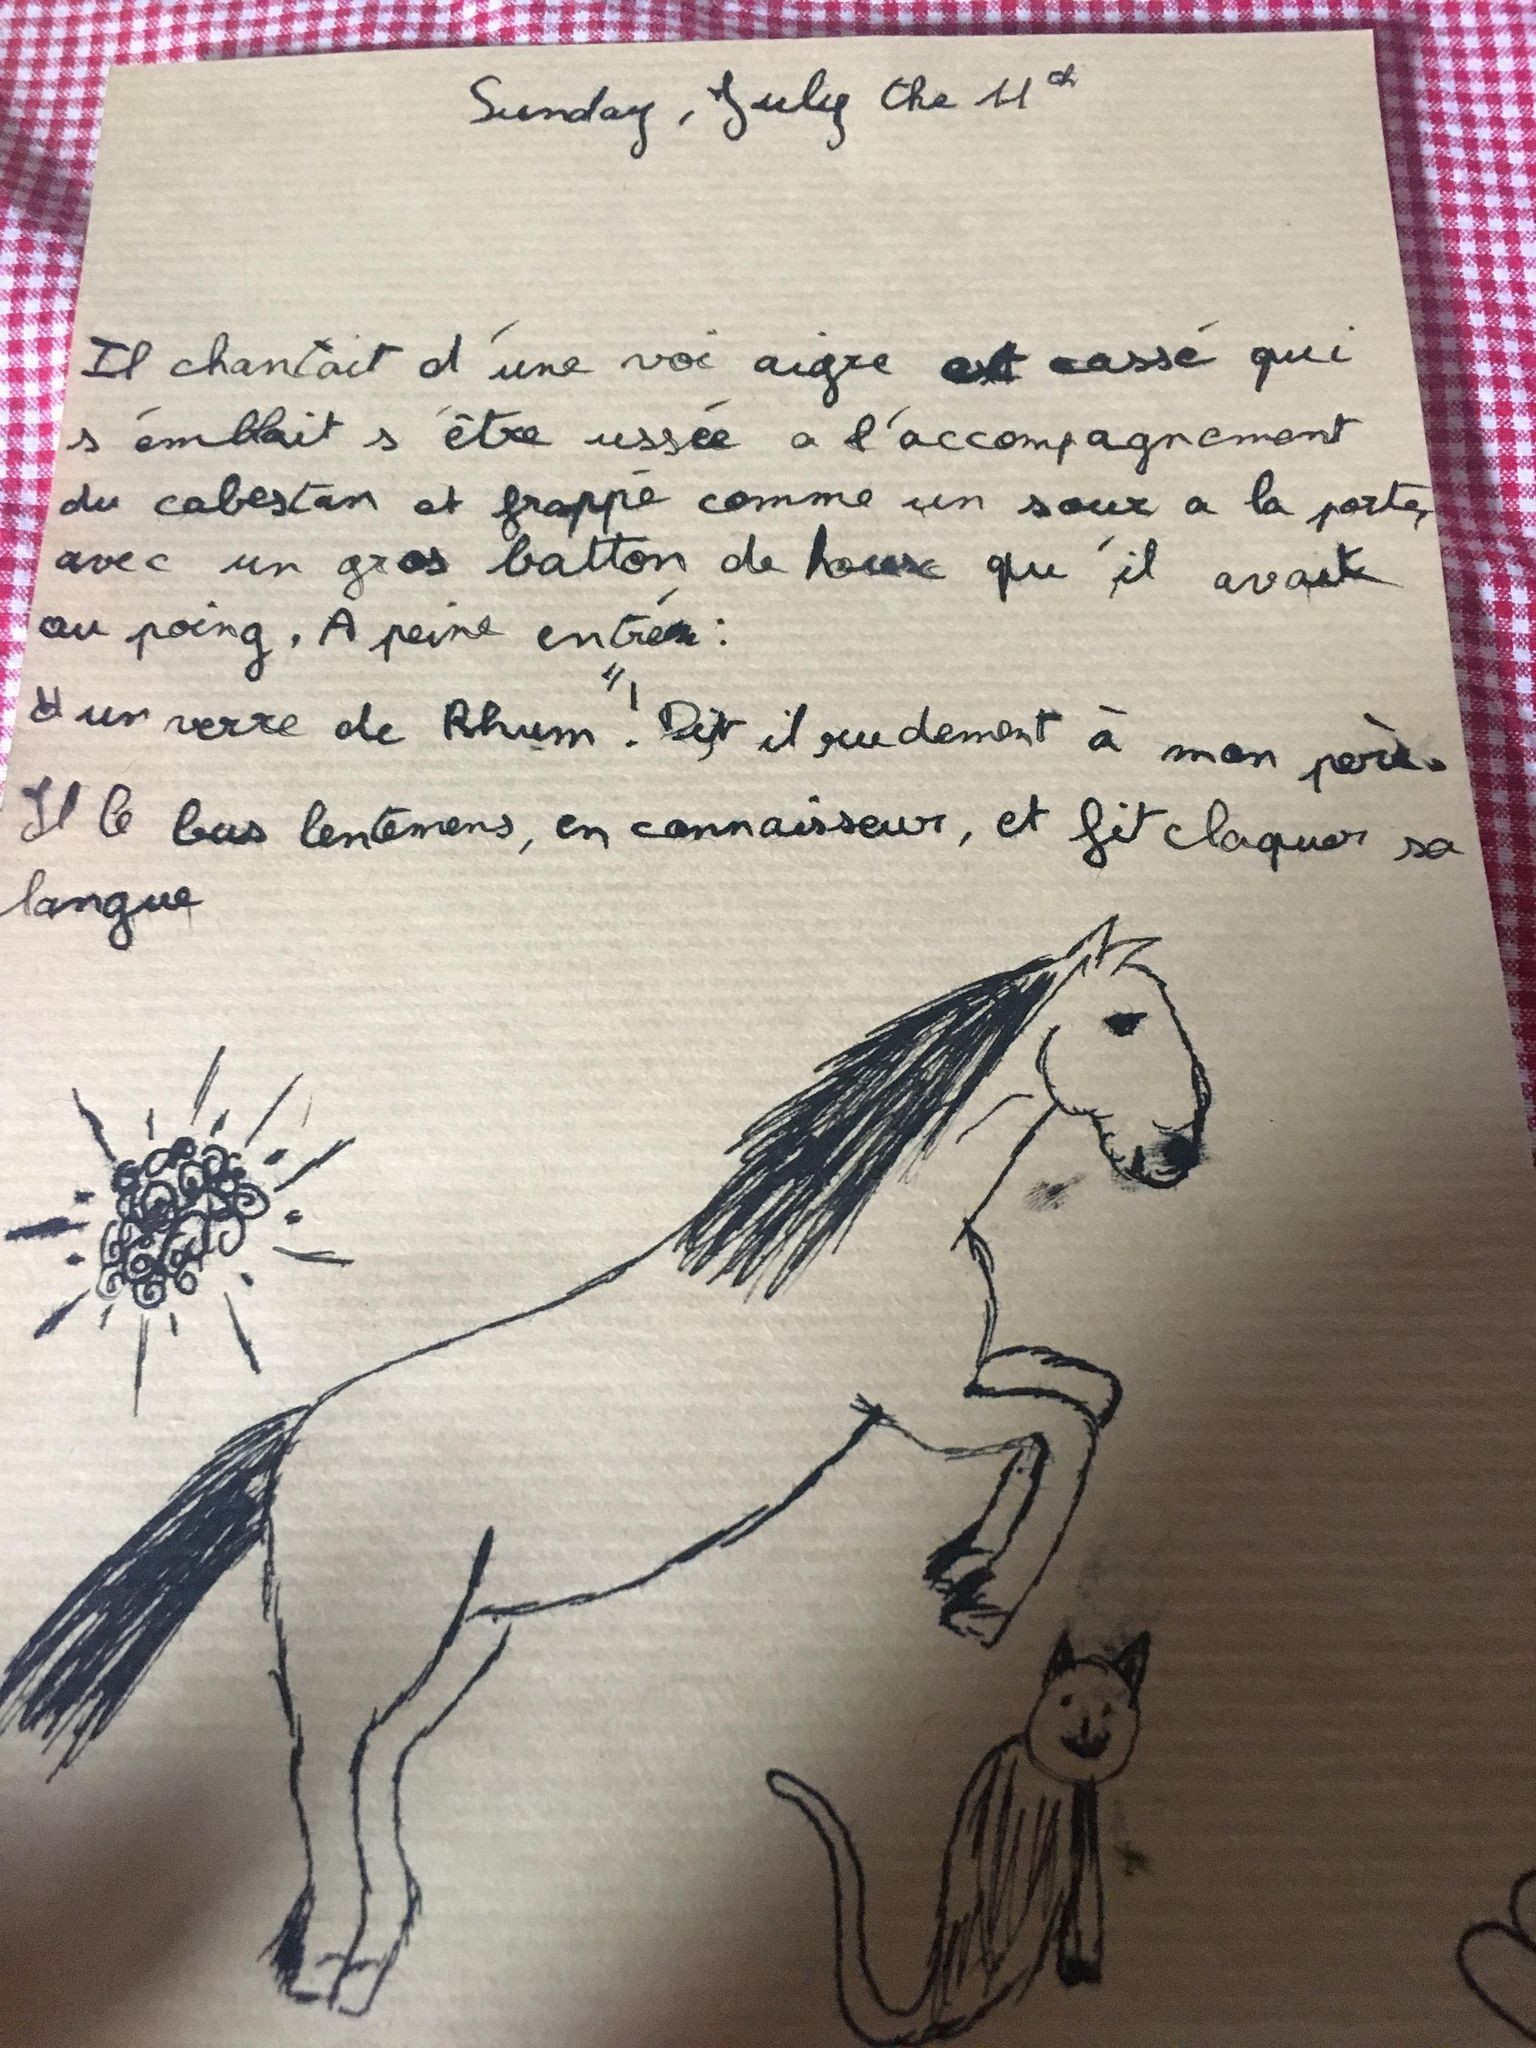 Sunday, July the 11th
Il chantait d'une voi aigre est cassé qui
s'émblait s'être ussée a l'accompagnement
du cabestan et frappé comme un sour a la porte,
avec un gros batton de houx qu'il avait
au poing. A peine entré :
"un verre de Rhum"! Dit il rudement à mon père.
Il le bus lentemens, en connaisseur, et fit claquer sa
langue